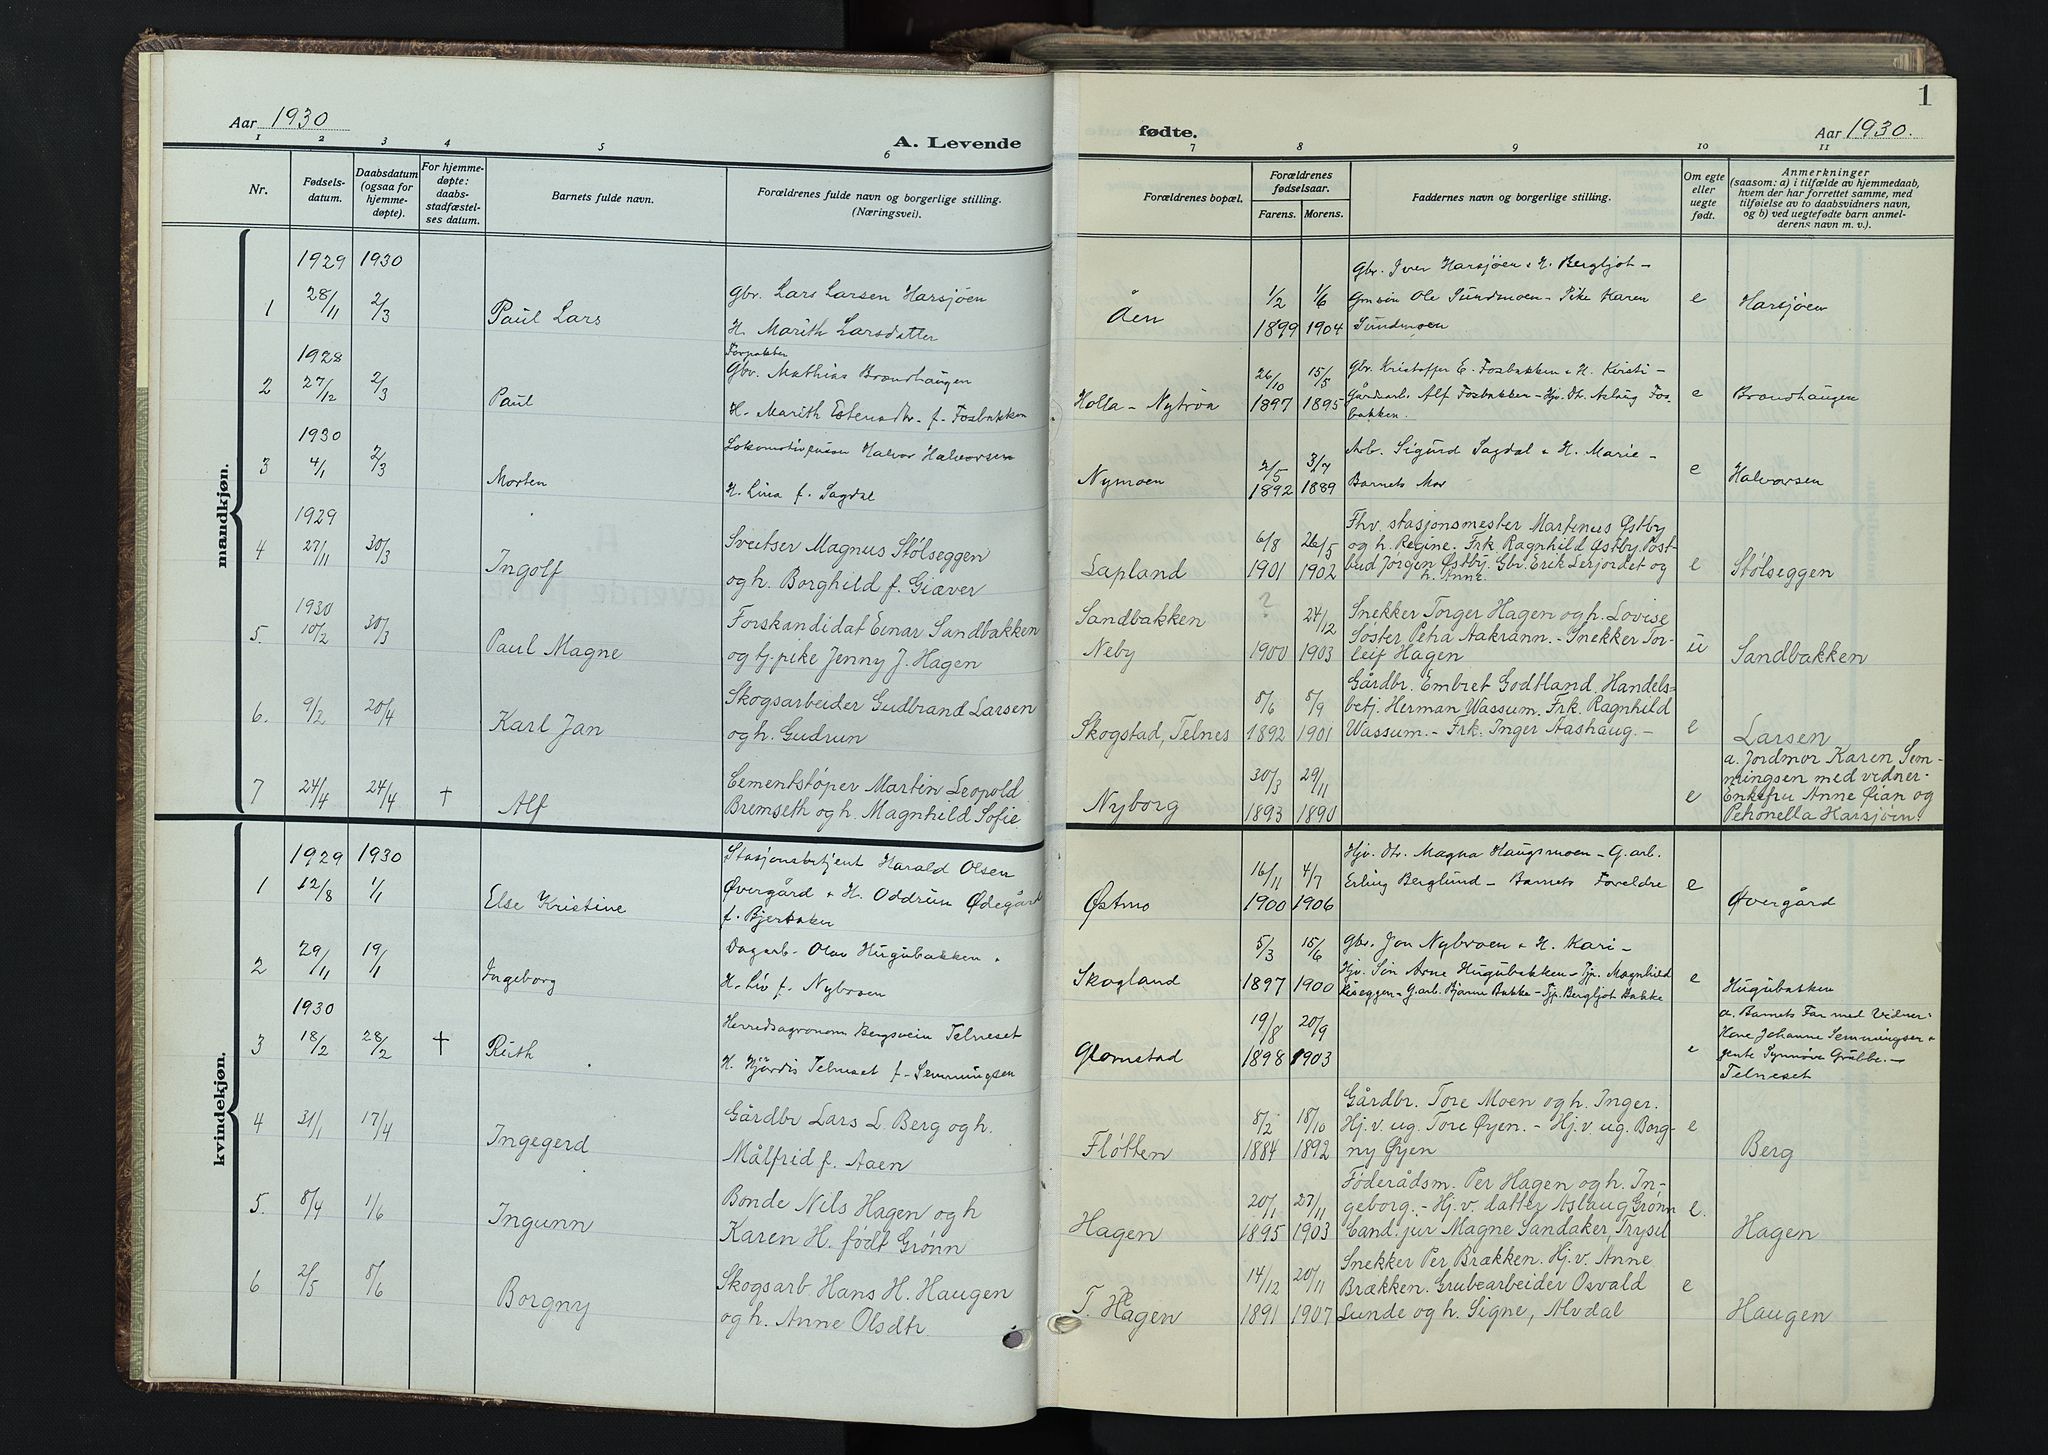 1
Aar 1930
A. Levende
fødte.
Aar 1930.
1 2 3 4 5 6 7 8 9 10 11
Nr.
Fødsels-
datum.
Daabsdatum
(ogsaa for
hjemme-
døpte).
For hjemme-
døpte:
daabs-
stadfæstel-
ses datum.
Barnets fulde navn.
Forældrenes fulde navn og borgerlige stilling.
(Næringsvei).
Forældrenes bopæl.
Forældrenes
fødselsaar.
Farens. Morens.
Faddernes navn og borgerlige stilling.
Om egte
eller
uegte
født.
Anmerkninger
(saasom: a) i tilfælde av hjemmedaab,
hvem der har forrettet samme, med
tilføielse av to daabsvidners navn,
og b) ved uegtefødte barn anmel-
derens navn m. v.).
mandkjøn.
1929 1930
1 28/11 2/3 Paul Lars
Gbr. Lars Larsen Harsjøen
H. Marith Larsdatter
Åen
1/2 1899 1/6 1904
Gbr. Iver Harsjøen & H. Bergljot -
Gmsøn Ole Sundmoen - Pike Karen
Sundmoen
e Harsjøen
1928
2 27/12 2/3 Paul
Forpakter
Gbr. Mathias Brandhaugen
H. Marith Estensdtr. f. Fosbakken
Holla - Nytrøa
26/10 1897 15/5 1895
Gbr. Kristoffer E. Fosbakken & H. Kirsti -
Gårdarb. Alf Fosbakken - Hjv. Dtr. Aslaug Fos-
bakken.
e Brandhaugen
1930
3 4/1 2/3 Morten
Halvor Halvorsen
H. Lina f. Sagdal
Nymoen
2/5 1892 3/7 1889
Arb. Sigurd Sagdal & H. Marie -
Barnets Mor
e Halvorsen
1929
4 27/11 30/3 Ingolf
Sveitser Magnus Stølseggen
og h. Borghild f. Giæver
Lapland
6/8 1901 26/5 1902
Fhv. stasjonsmester Martinus Østby
og h. Regine. Frk. Ragnhild Østby. Post-
bud Jørgen Østby. Gbr. Erik Lerjordet og
h. Anne.
e Stølseggen
1930
5. 10/2 30/3 Paul Magne
Forskandidat Einar Sandbakken
og tj.pike Jenny J. Hagen
Sandbakken
Neby
? 1900 24/12 1903
Snekker Torger Hagen og h. Lovise
Søster Petra Aakrann. - Snekker Tor-
leif Hagen
u Sandbakken
6. 9/2 20/4 Karl Jan
Skogsarbeider Gudbrand Larsen
og h. Gudrun
Skogstad, Telnes
8/6 1892 8/9 1901
Gårdbr. Embret Godtland. Handels-
betj. Herman Wassum. Frk. Ragnhild
Wassum. - Frk. Inger Aashaug. -
e Larsen
7 24/4 24/4 † Alf
Cementstøper Martin Leopold
Bremseth og h. Magnhild Sofie
Nyborg
30/3 1893 29/11 1890
e
a. Jordmor Karen Sem-
mingsen med vidner.
Enkefru Anne Øian og
Petronella Harsjøen.
kvindekjøn.
1929 1930
1 12/8 1/1 Else Kristine
Stasjonsbetjent Harald Olsen
Øvergård & H. Oddrun Ødegård
f. Bjerkaker
Østmo
16/11 1900 4/7 1906
Hjv. Dtr. Magna Haugsmoen - G. arb.
Erling Berglund - Barnets Foreldre
e Øvergård
2 29/11 19/1 Ingeborg
Dagarb. Olav Hugubakken &
H. Liv f. Nybroen
Skogland
5/3 1897 15/6 1900
Gbr. Jon Nybroen & H. Kari -
Hjv. Søn Arne Hugubakken - Tjp. Magnhild
G. arb. Bjarne Bakke - Tjp. Bergljot Bakke
e Hugubakken
1930
3 18/2 28/2 † Ruth
Herredsagronom Bergsvein Telneset
H. Hjördis Telneset f. Semmingsen
Glomstad
19/8 1898 20/9 1903
e
a. Barnets Far med Vidner:
Kone Johanne Semmingsen &
jente Synnøve Grubbe. -
Telneset
4 31/1 17/4 Ingegerd
Gårdbr Lars L. Berg og h.
Målfrid f. Aaen
Fløtten
8/2 1884 18/10 1892
Gårdbr. Tore Moen og h. Inger.
Hj. v. ug. Tore Øyen. - Hj. v. ug. Borg-
ny Øyen
e Berg
5. 8/4 1/6 Ingunn
Bonde Nils Hagen og h
Karen H. født Grønn
Hagen
20/1 1895 27/11 1903
Føderådsm. Per Hagen og h. In-
geborg. - Hj. v. datter Aslaug Grønn
Cand. jur Magne Sandaker, Trysil
e. Hagen
6 2/5 8/6 Borgny
Skogsarb. Hans H. Haugen
og h. Anne Olsdtr.
T. Hagen
14/12 1891 20/11 1907
Snekker Per Brækken. Hj. v. Anne
Brækken. Grubearbeider Osvald
Lunde og h. Signe, Alvdal
e Haugen